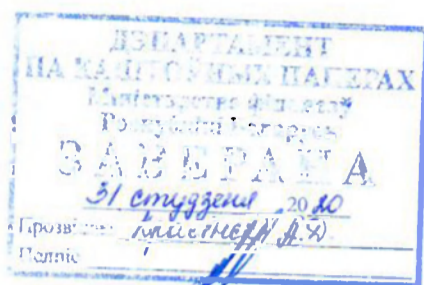 ДЭПАРТАМЕНТ
ПА КАШТОЎНЫХ ПАПЕРАХ
Міністэрства фінансаў
Рэспублікі Беларусь
ЗАВЕРАНА
31 студзеня 2020
Прозвішча
Подпіс